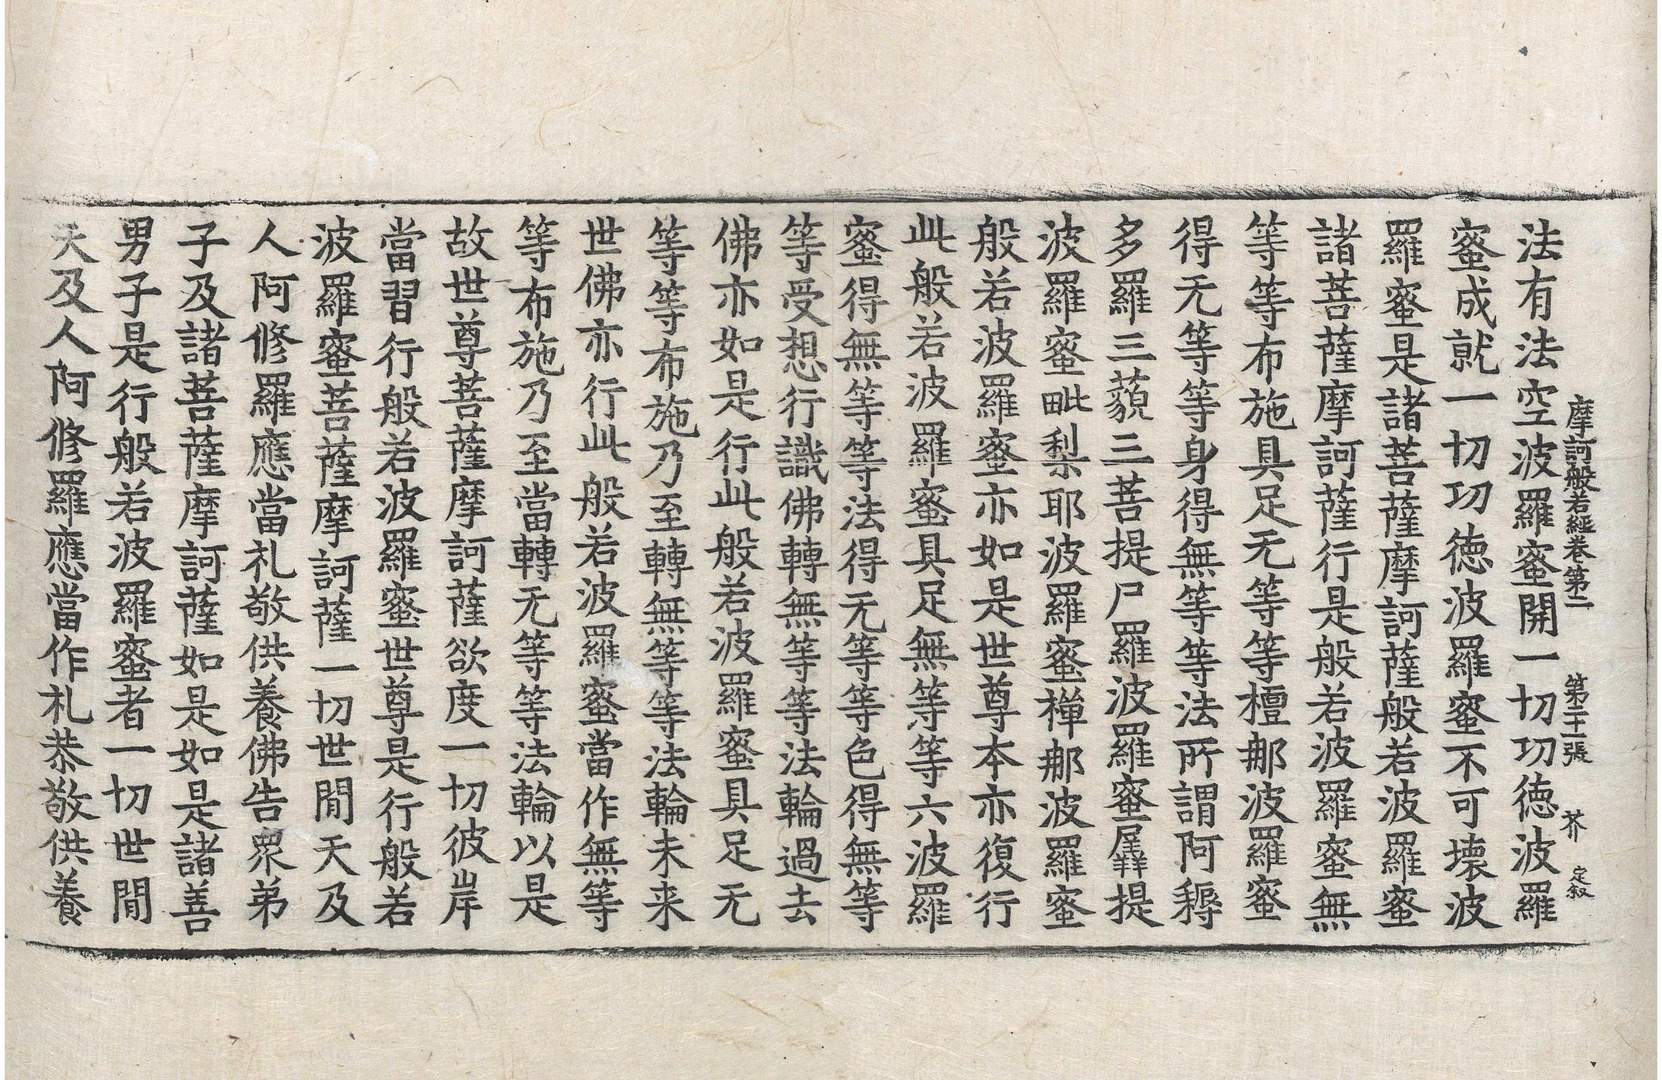 摩訶般若經卷第二 第二十一張 芥 定叙
法有法空波羅蜜開一切功徳波羅
蜜成就一切功徳波羅蜜不可壞波
羅蜜是諸菩薩摩訶薩般若波羅蜜
諸菩薩摩訶薩行是般若波羅蜜無
等等布施具足无等等檀那波羅蜜
得无等等身得無等等法所謂阿耨
多羅三藐三菩提尸羅波羅蜜羼提
波羅蜜毗梨耶波羅蜜禅那波羅蜜
般若波羅蜜亦如是世尊本亦復行
此般若波羅蜜具足無等等六波羅
蜜得無等等法得无等等色得無等
等受想行識佛轉無等等法輪過去
佛亦如是行此般若波羅蜜具足无
等等布施乃至轉無等等法輪未来
世佛亦行此般若波羅蜜當作無等
等布施乃至當轉无等等法輪以是
故世尊菩薩摩訶薩欲度一切彼岸
當習行般若波羅蜜世尊是行般若
波羅蜜菩薩摩訶薩一切世間天及
人阿修羅應當礼敬供養佛告衆弟
子及諸菩薩摩訶薩如是如是諸善
男子是行般若波羅蜜者一切世間
天及人阿修羅應當作礼恭敬供養